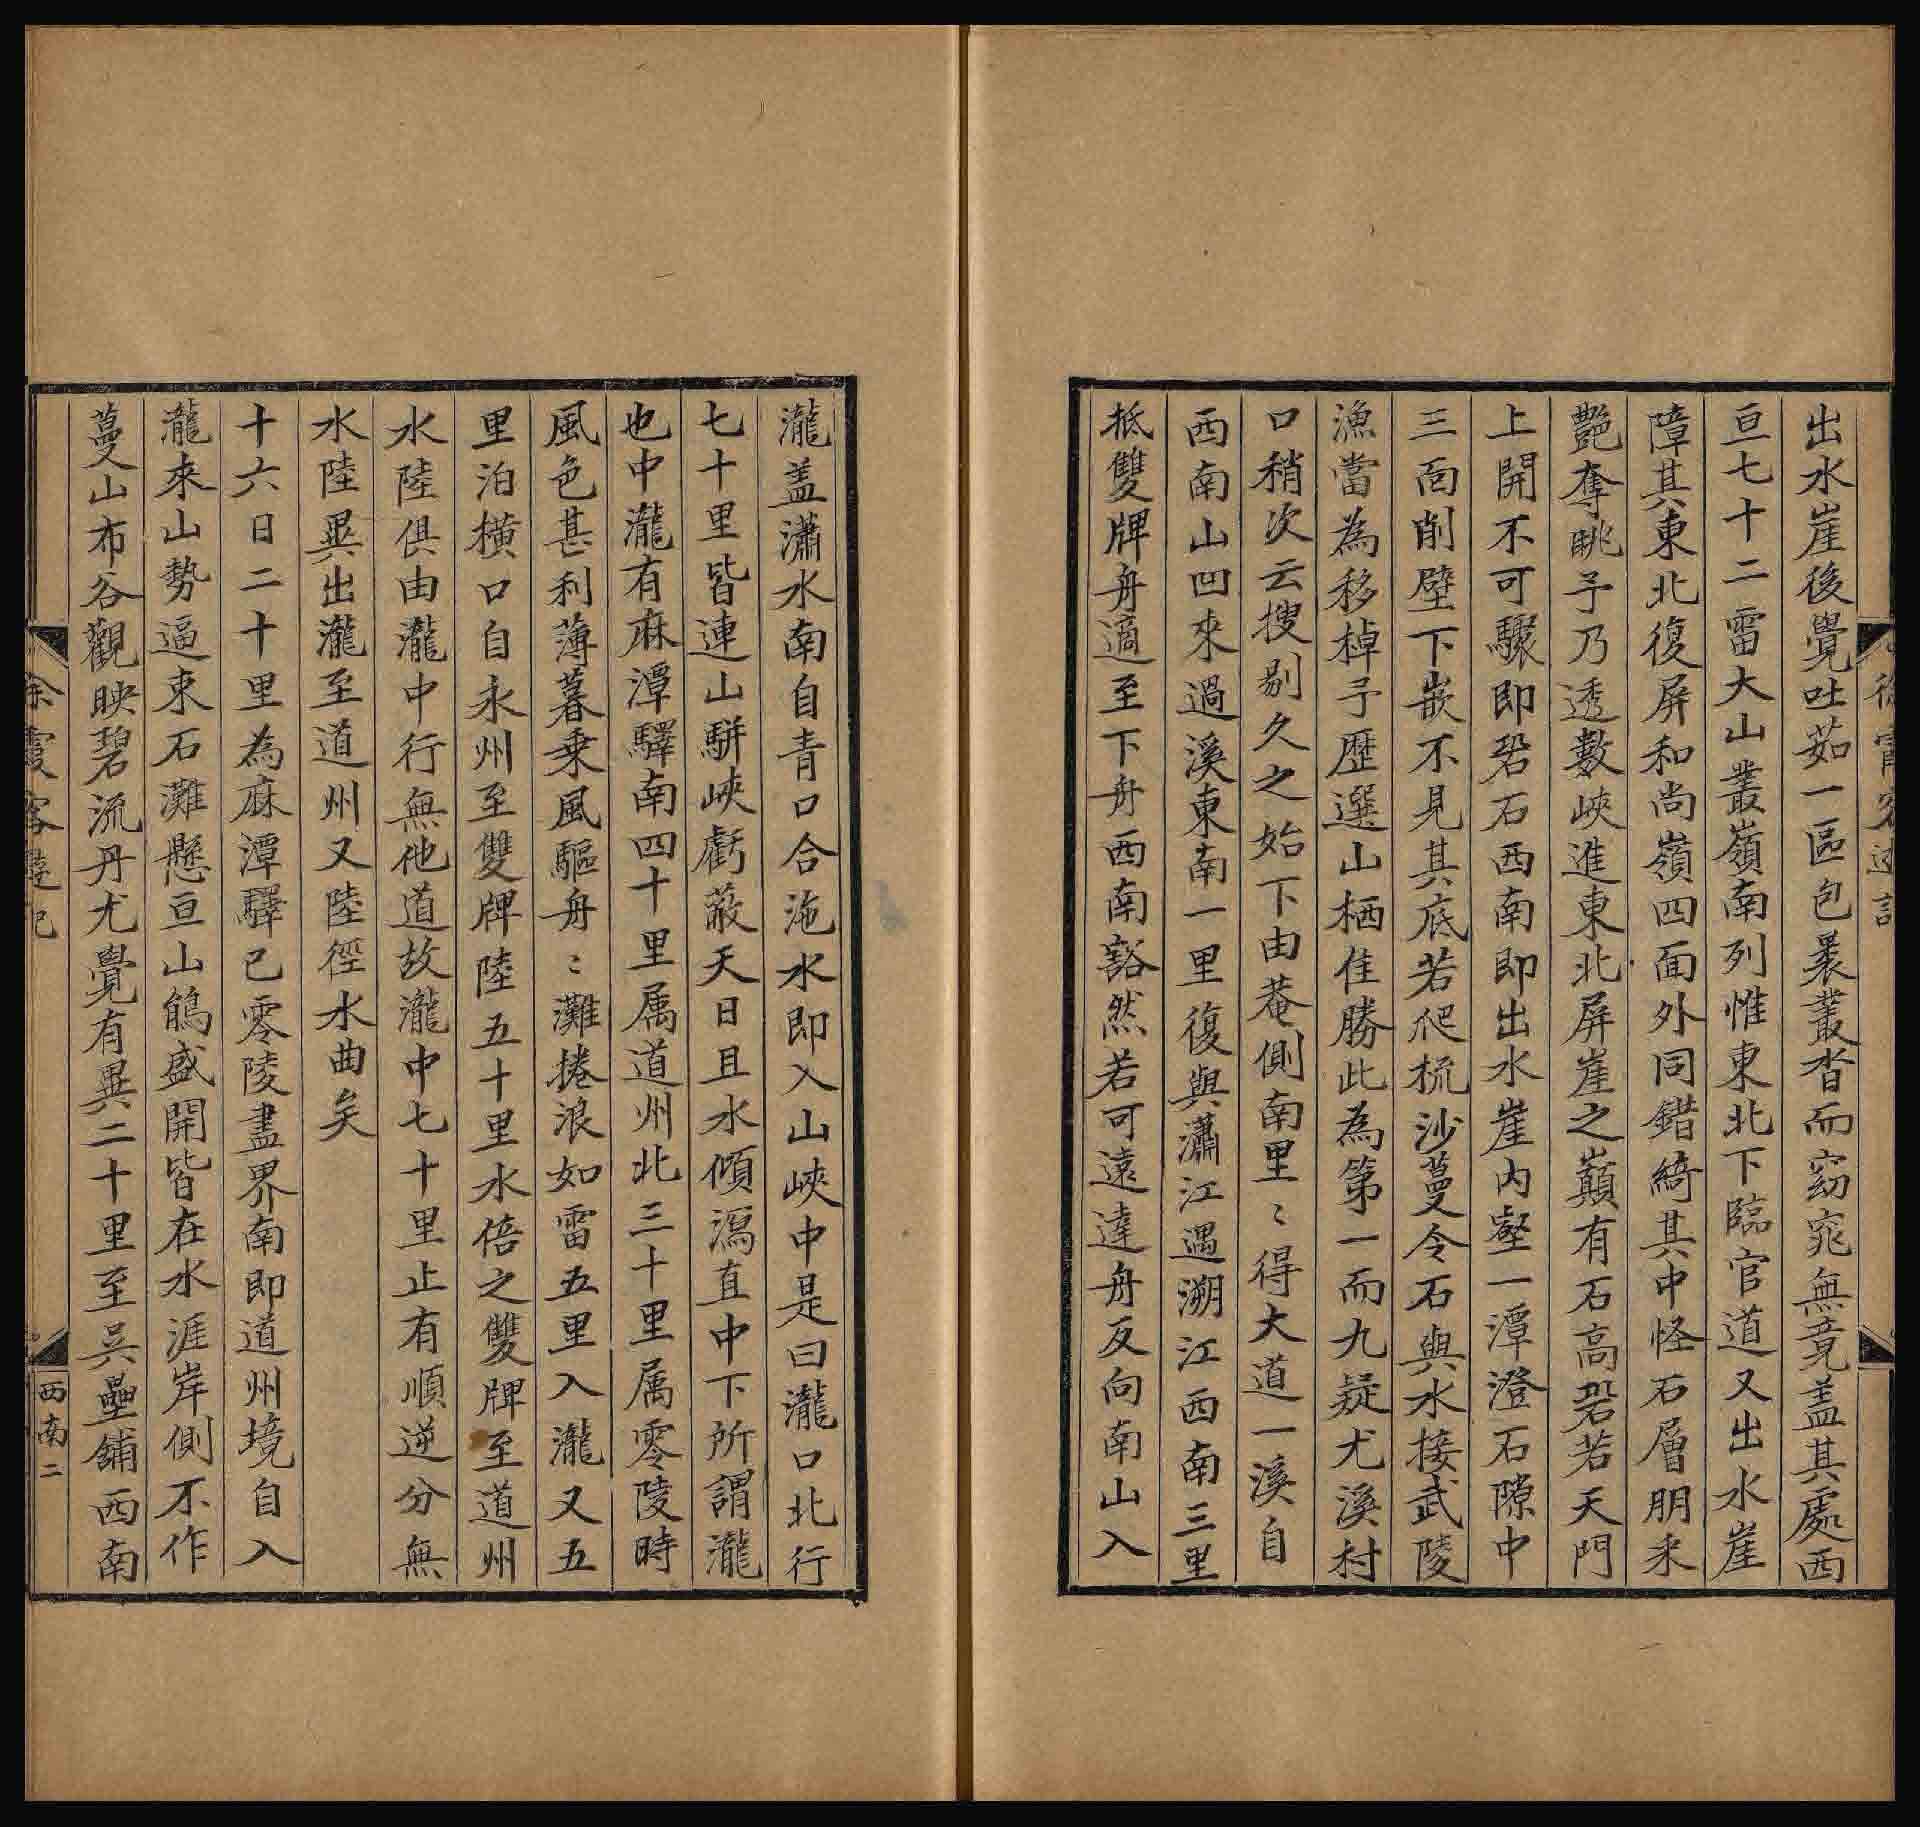 出水崖後覺吐茹一區包裹叢沓而窈窕無竟蓋其處西
亘七十二雷大山叢嶺南列惟東北下臨官道又出水崖
障其東北復屏和尚嶺四面外同錯綺其中怪石層朋采
艷奪眺予乃透數峽進東北屏崖之巔有石高碞若天門
上開不可驟即碞石西南即出水崖內壑一潭澄石隙中
三面削壁下嵌不見其底若爬梳沙蔓令石與水接武陵
漁當為移棹予歷選山栖佳勝此為第一而九疑尤溪村
口稍次云搜剔久之始下由菴側南里〻得大道一溪自
西南山凹來過溪東南一里復與瀟江遇溯江西南三里
抵雙牌舟適至下舟西南豁然若可遠達舟反向南山入
瀧蓋瀟水南自青口合沲水即入山峽中是曰瀧口北行
七十里皆連山駢峽虧蔽天日且水傾瀉直中下所謂瀧
也中瀧有麻潭驛南四十里属道州北三十里属零陵時
風色甚利薄暮乗風驅舟〻灘捲浪如雷五里入瀧又五
里泊橫口自永州至雙牌陸五十里水倍之雙牌至道州
水陸俱由瀧中行無他道故瀧中七十里止有順逆分無
水陸異出瀧至道州又陸徑水曲矣
十六日二十里為麻潭驛已零陵盡界南即道州境自入
瀧來山勢逼束石灘懸亘山鵑盛開皆在水涯岸側不作
蔓山布谷觀映碧流丹尤覺有異二十里至吳壘舖西南
徐霞客遊記
西南二